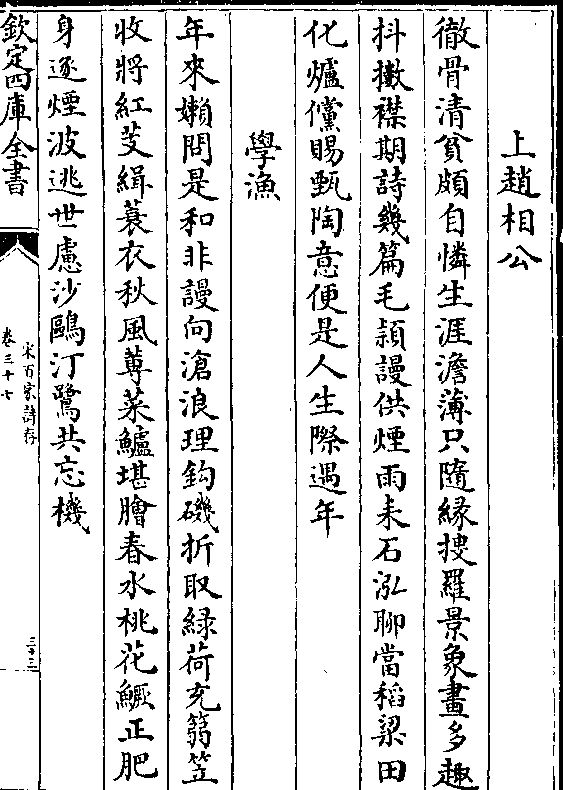 上趙相公
徹骨清貧頗自憐生涯澹薄只隨緣搜羅景象畫多趣
抖擻襟期詩幾篇毛頴謾供煙雨耒石泓聊當稻粱田
化爐儻賜甄陶意便是人生際遇年
學漁
年來嬾問是和非謾向滄浪理鈎磯折取緑荷充篛笠
收將紅芰緝蓑衣秋風蓴菜鱸堪膾春水桃花鱖正肥
身逐煙波逃世慮沙鷗汀鷺共忘機
欽定四庫全書
宋百家詩存
卷三十七
三十三